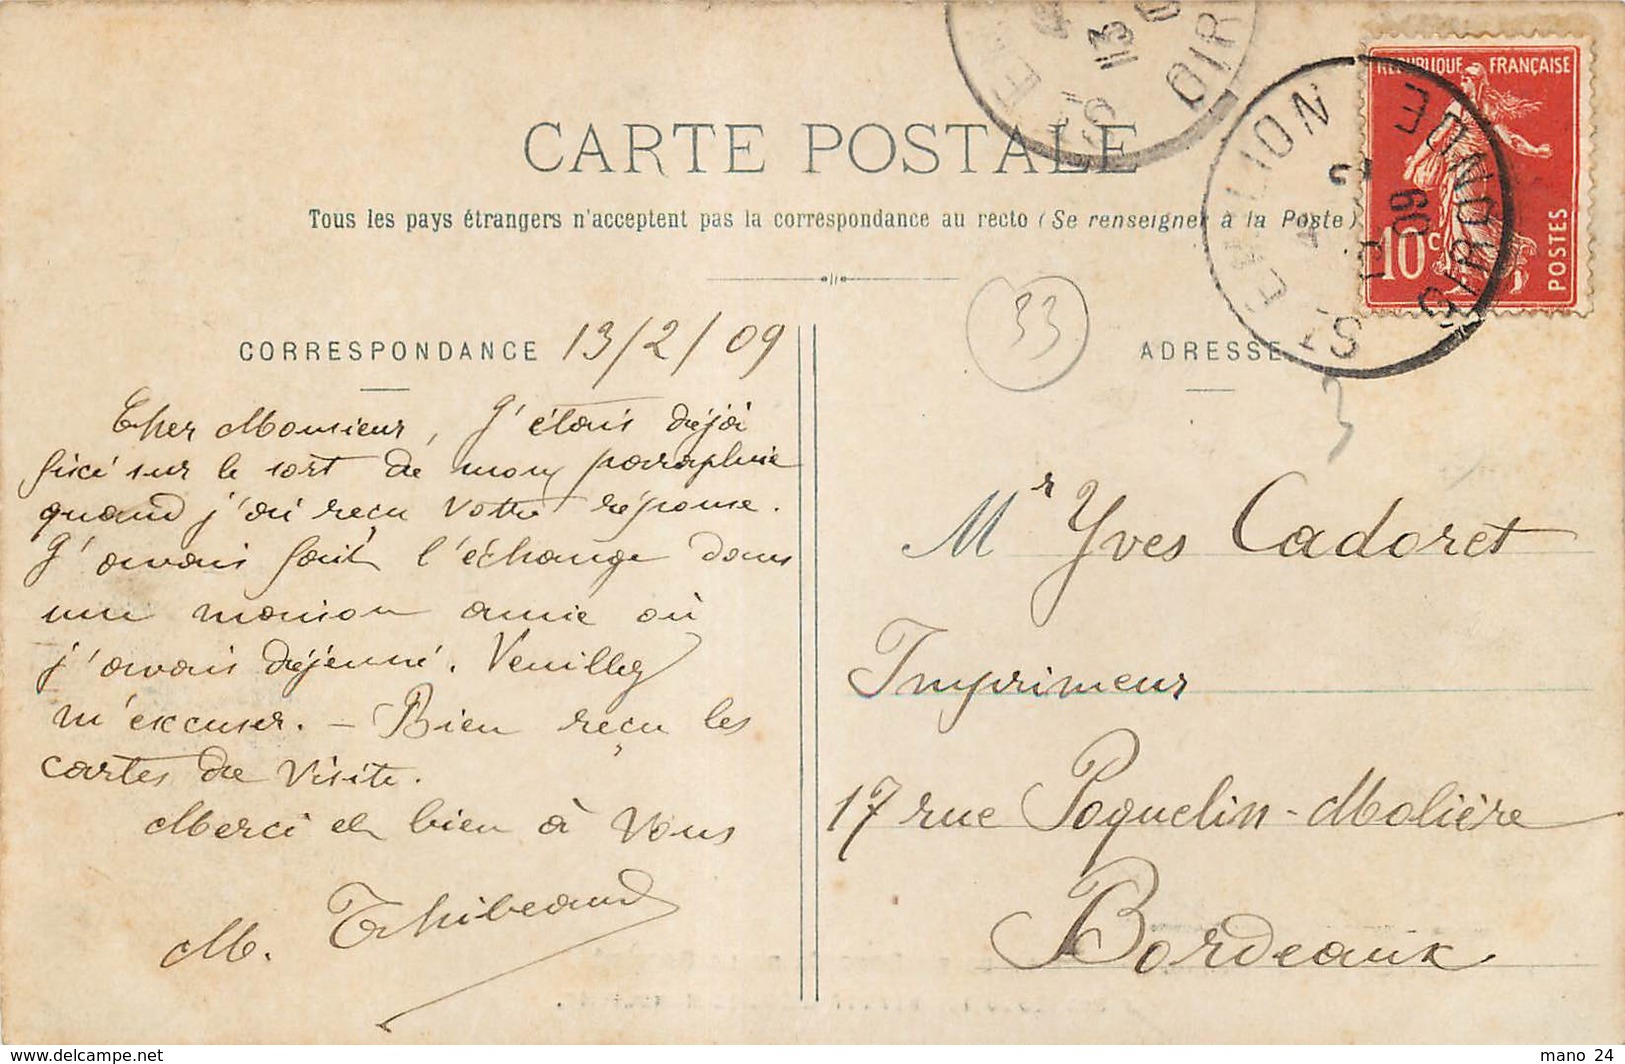 CARTE POSTALE
Tous les pays étrangers n'acceptent pas la correspondance au recto (Se renseigner à la Poste)
REPUBLIQUE FRANÇAISE
10c
POSTES
ST EMILION
GIRONDE
13
2
09
33
CORRESPONDANCE 13/2/09
Cher Monsieur, J'étais déjà
fixé sur le sort de mon parapluie
quand j'ai reçu votre réponse.
J'avais fait l'échange dans
une maison amie où
j'avais déjeuné. Veuillez
m'excuser. – Bien reçu les
cartes de visite.
Merci et bien à vous
M. Thibeaud
ADRESSE
3
Mr Yves Cadoret
Imprimeur
17 rue Poquelin-Molière
Bordeaux
www.delcampe.net
mano 24